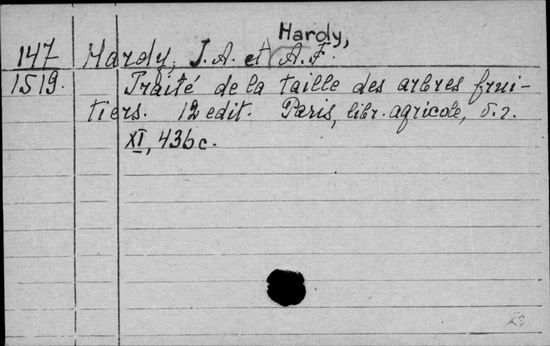 Hardy,
147 Hardy, J. A. et A. F.
1519. Traité de la taille des arbres frui-
tiers. 12 edit. Paris, libr. agricole, б. г.
XI, 436 c.